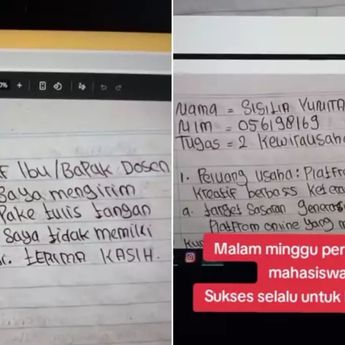 0%
Ibu/Bapak Dosen
Saya mengirim
Pake tulis tangan
Saya tidak memiliki
TERIMA KASIH.
Nama = SISILIA YUNITA
NIM = 056198169
Tugas = 2 Kewirausaha
1. Peluang Usaha: Platfr
Kreatif berbasis Keter
a. target Sasaran Generas
Platfrom online yang m
Malam minggu per
mahasiswa
Sukses selalu untuk